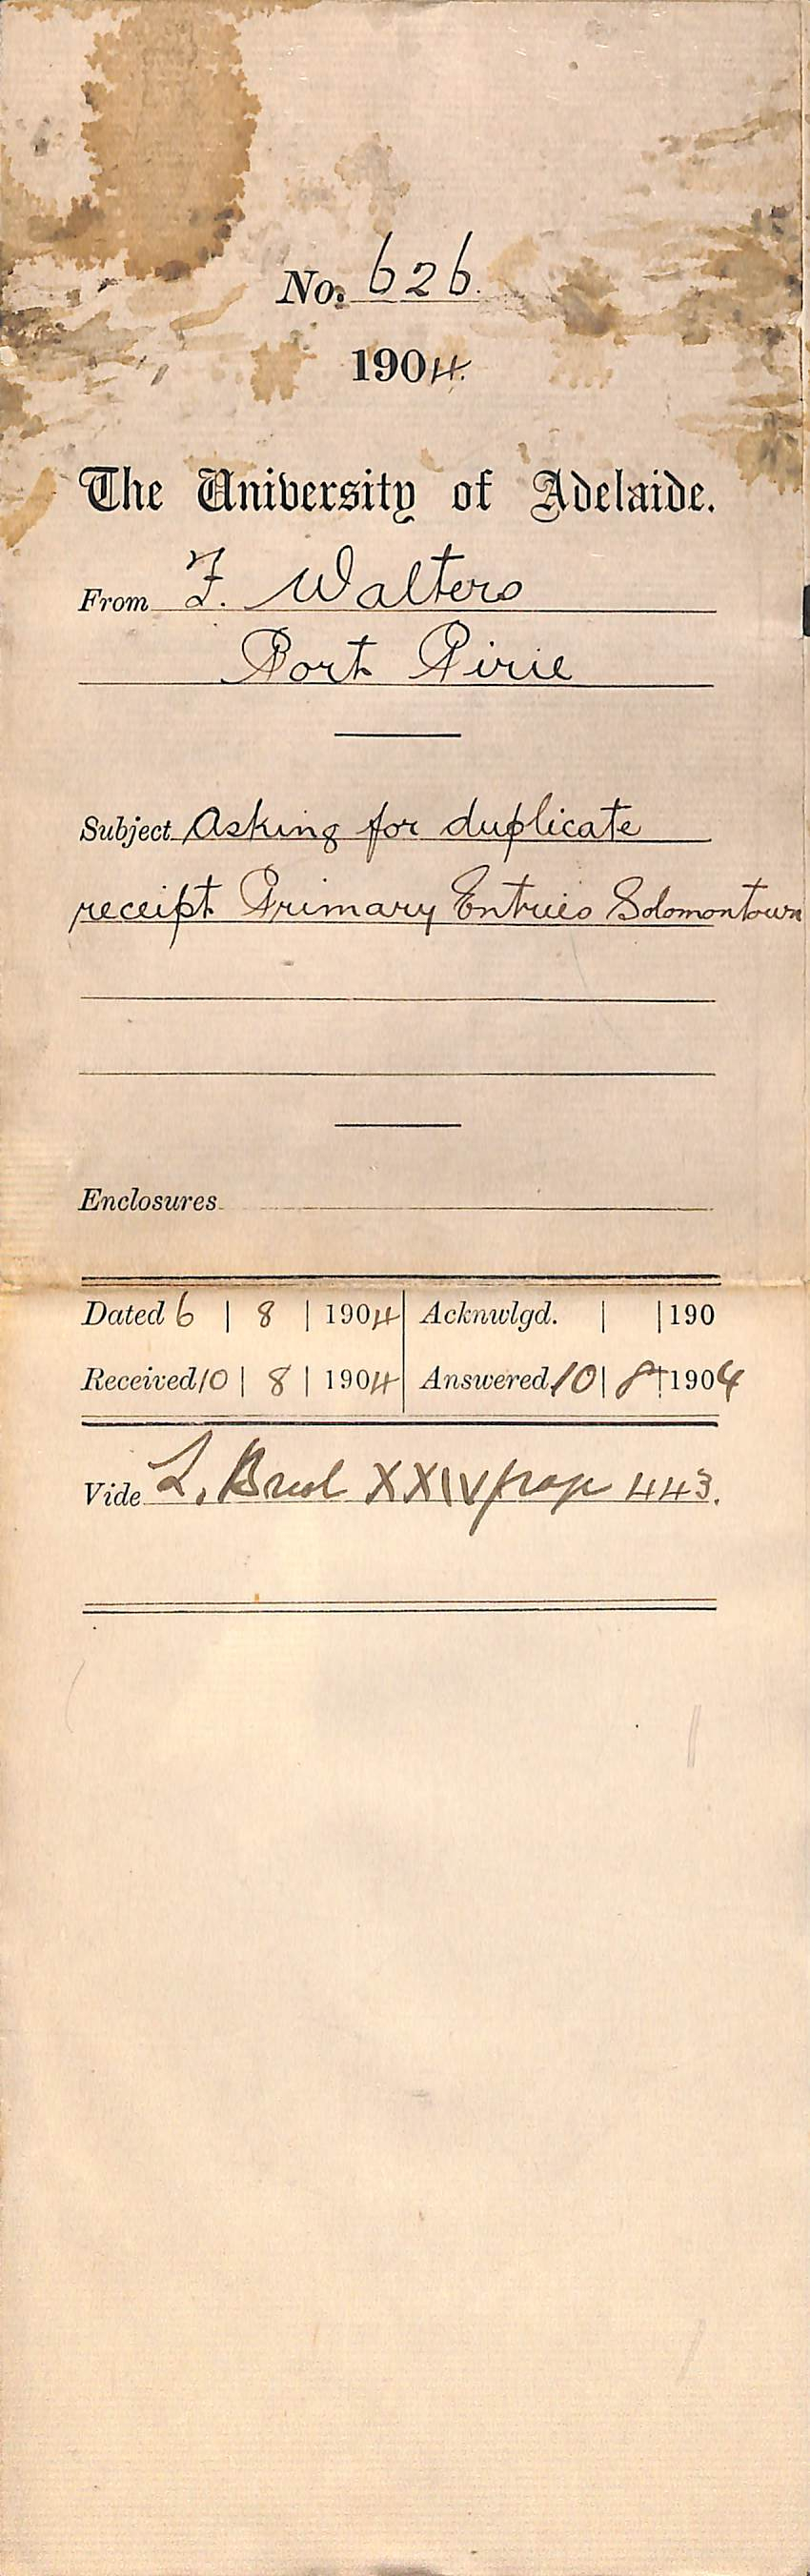 No. 626.
1904.
The University of Adelaide.
From F. Walters
Port Pirie
Subject Asking for duplicate
receipt Primary Entries Solomontown
Enclosures
Dated 6 | 8 | 1904 Acknwlgd. | | 190
Received 10 | 8 | 1904 Answered 10 | 8 | 1904
Vide L. XXIV page 443.